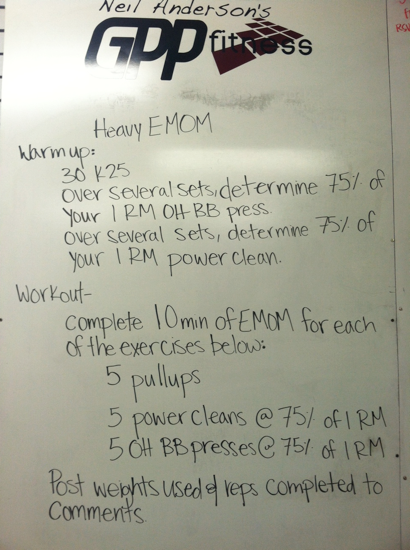 Neil Anderson's
GPP fitness
Heavy EMOM
Warm up:
30 K25
over several sets, determine 75% of
your 1 RM OH BB press.
over several sets, determine 75% of
your 1 RM power clean.
Workout-
Complete 10 min of EMOM for each
of the exercises below:
5 pullups
5 power cleans @ 75% of 1 RM
5 OH BB presses @ 75% of 1 RM
Post weights used & reps completed to
Comments.